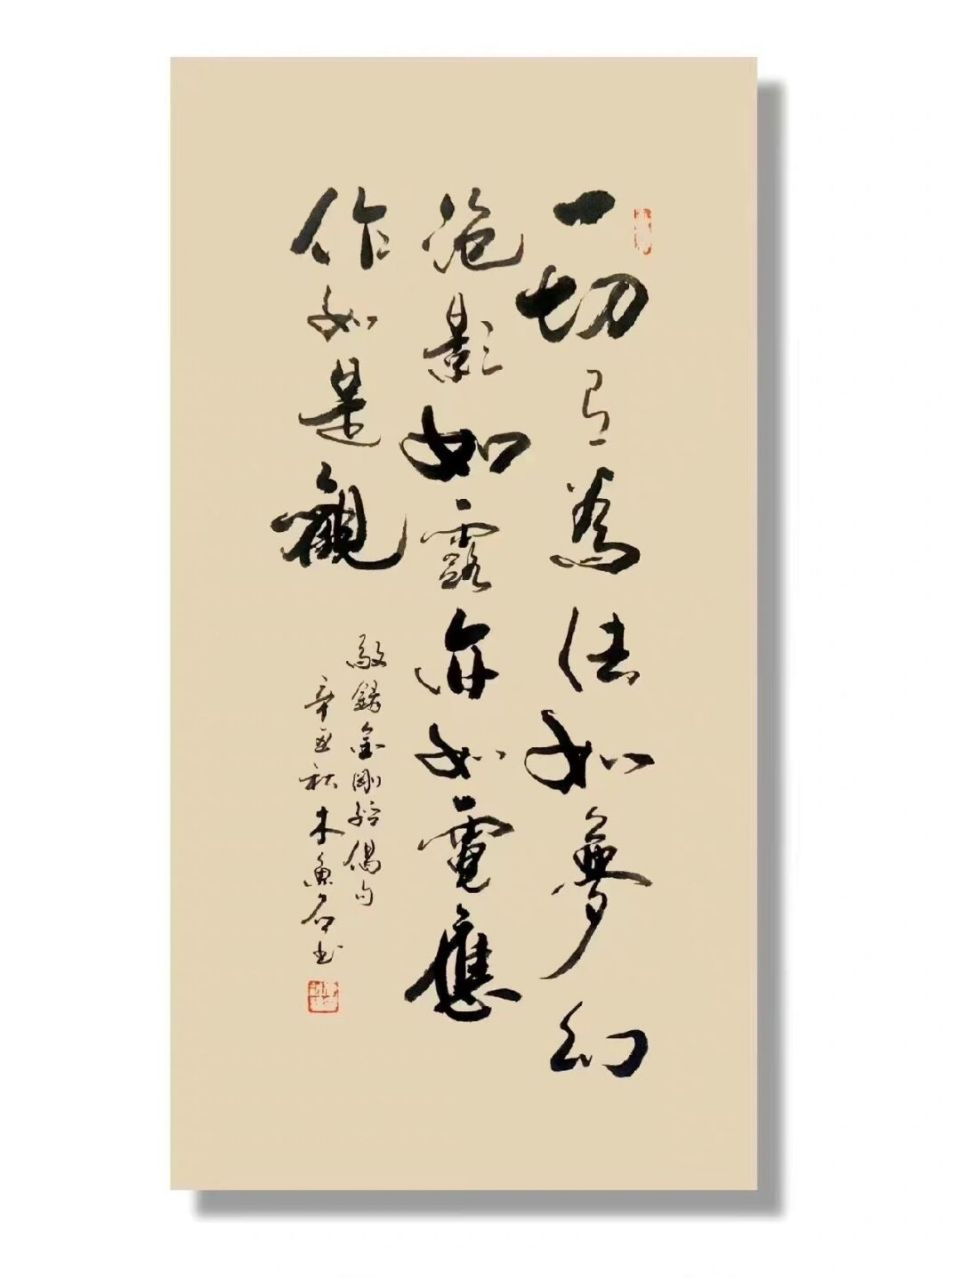 一切有為法如夢幻
泡影如露亦如電應
作如是觀
敬錄金剛經偈句
辛丑秋木魚石书